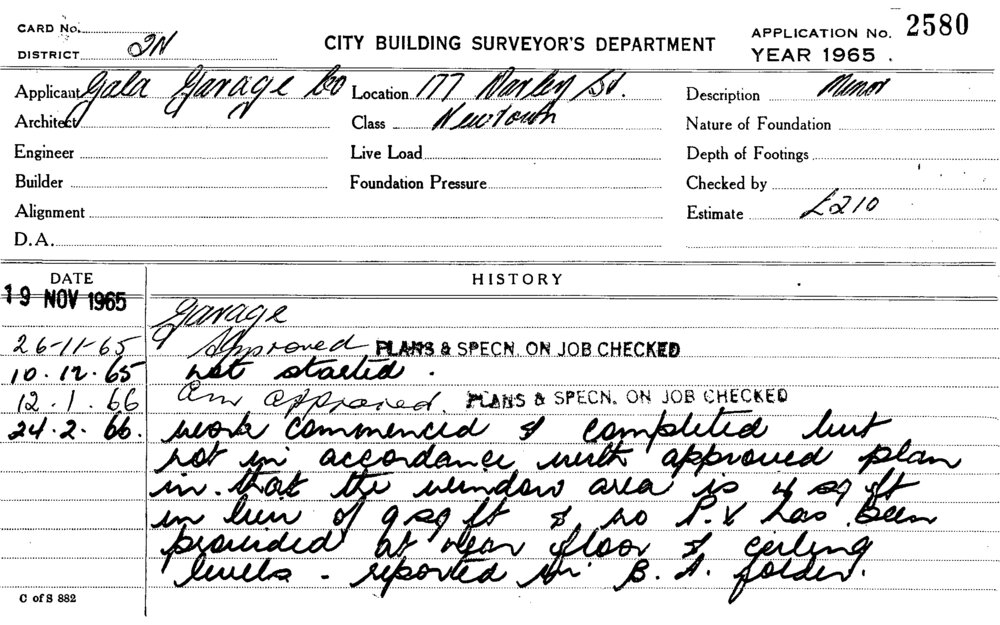 CARD No.
DISTRICT 2N
CITY BUILDING SURVEYOR'S DEPARTMENT
APPLICATION No. 2580
YEAR 1965.
Applicant Gala Garage Co Location 177 Darley St. Description Minor
Architect Class Newtown Nature of Foundation
Engineer Live Load Depth of Footings
Builder Foundation Pressure Checked by
Alignment Estimate £210
D.A.
DATE HISTORY
19 NOV 1965
Garage
26-11-65 Approved PLANS & SPECN. ON JOB CHECKED
10.12.65 not started.
12.1.66 Am approved. PLANS & SPECN. ON JOB CHECKED
24.2.66. work commenced & completed but
not in accordance with approved plan
in that the window area is 4 sq ft
in lieu of 9 sq ft & no P.V has been
provided at near floor & ceiling
levels - reported in B.A. folder.
C of S 882